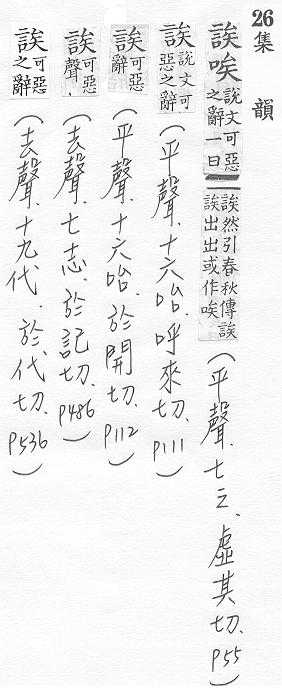 26
集韻
誒唉說文可惡之辭一曰誒然引春秋傳誒誒出出或作唉(平聲.七之、虛其切.P55)
誒說文可惡之辭(平聲.十六咍.呼來切.P111)
誒可惡辭(平聲.十六咍.於開切.P112)
誒可惡聲(去聲.七志.於記切.P486)
誒可惡之辭(去聲.十九代.於代切.P536)